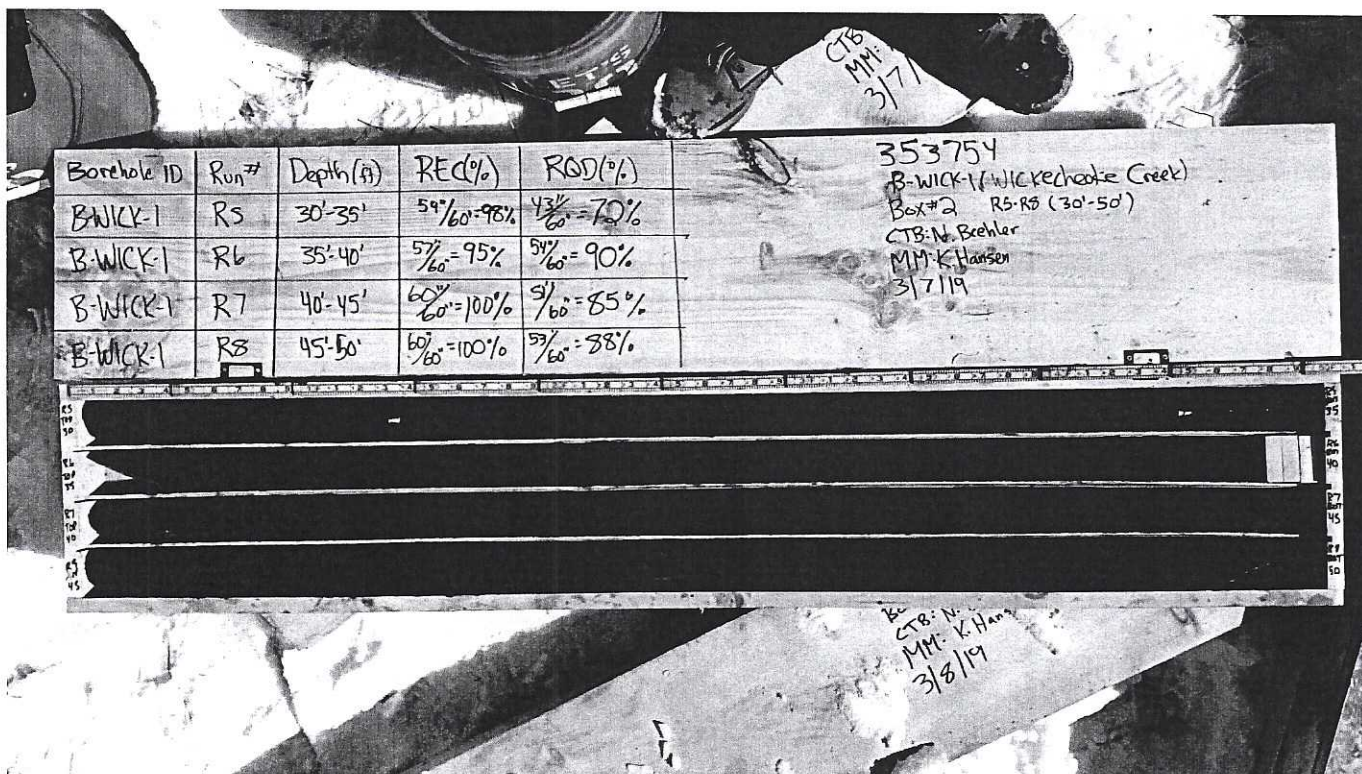 CTB
MM:
3/7/1
Borehole ID Run# Depth(ft) REC(%) RQD(%)
B-WICK-1 R5 30'-35' 59"/60"=98% 43"/60"=72%
B-WICK-1 R6 35'-40' 57"/60"=95% 54"/60"=90%
B-WICK-1 R7 40'-45' 60"/60"=100% 51"/60"=85%
B-WICK-1 R8 45'-50' 60"/60"=100% 53"/60"=88%
353754
B-WICK-1 (Wickecheoke Creek)
Box#2 R5-R8 (30'-50')
CTB: N. Beehler
MM: K. Hansen
3/7/19
R5
TOP
30
R5
BOT
35
R6
TOP
35
R6
BOT
40
R7
TOP
40
R7
BOT
45
45
R8
BOT
50
CTB: N.
MM: K. Hans
3/8/19